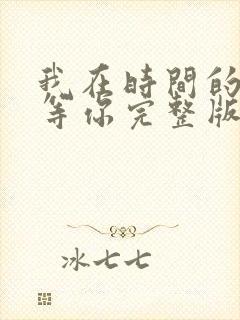 我在時間的
等你完整版
冰七七